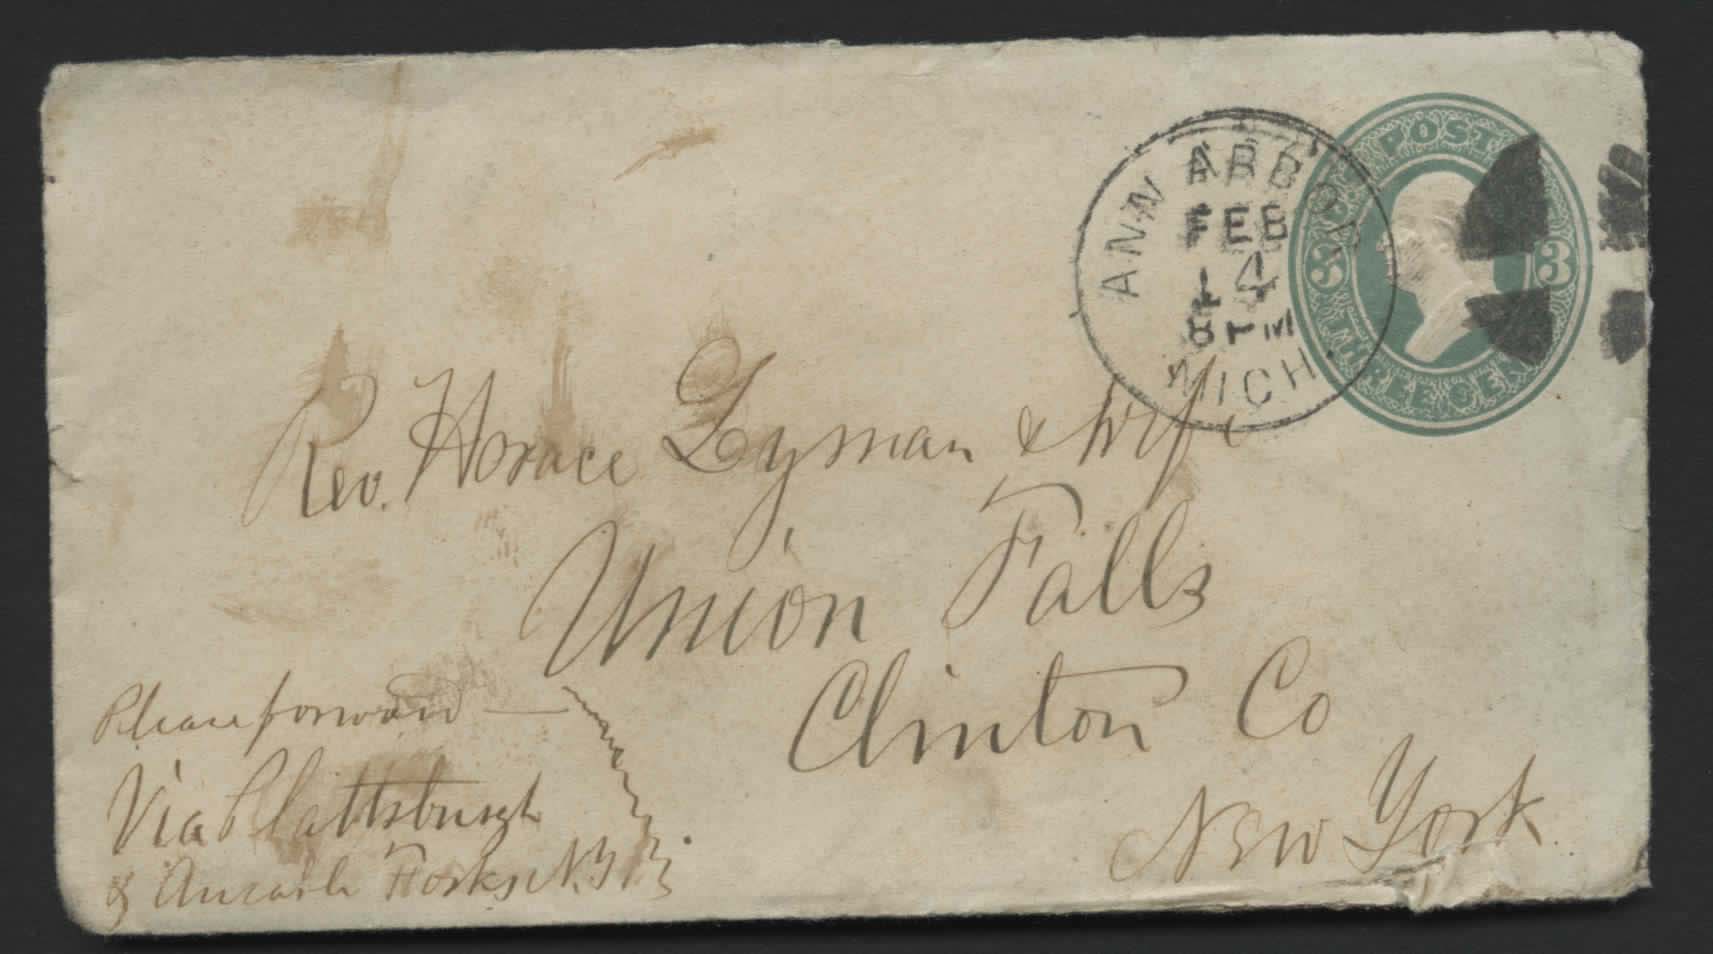 ANN ARBOR
FEB
14
8 PM
MICH.
POST
3 3
THREE CEN
Rev. Horace Lyman & Wife
Union Falls
Clinton Co
New York
Please forward —
Via Plattsburgh
& Ausable Forks N.Y.